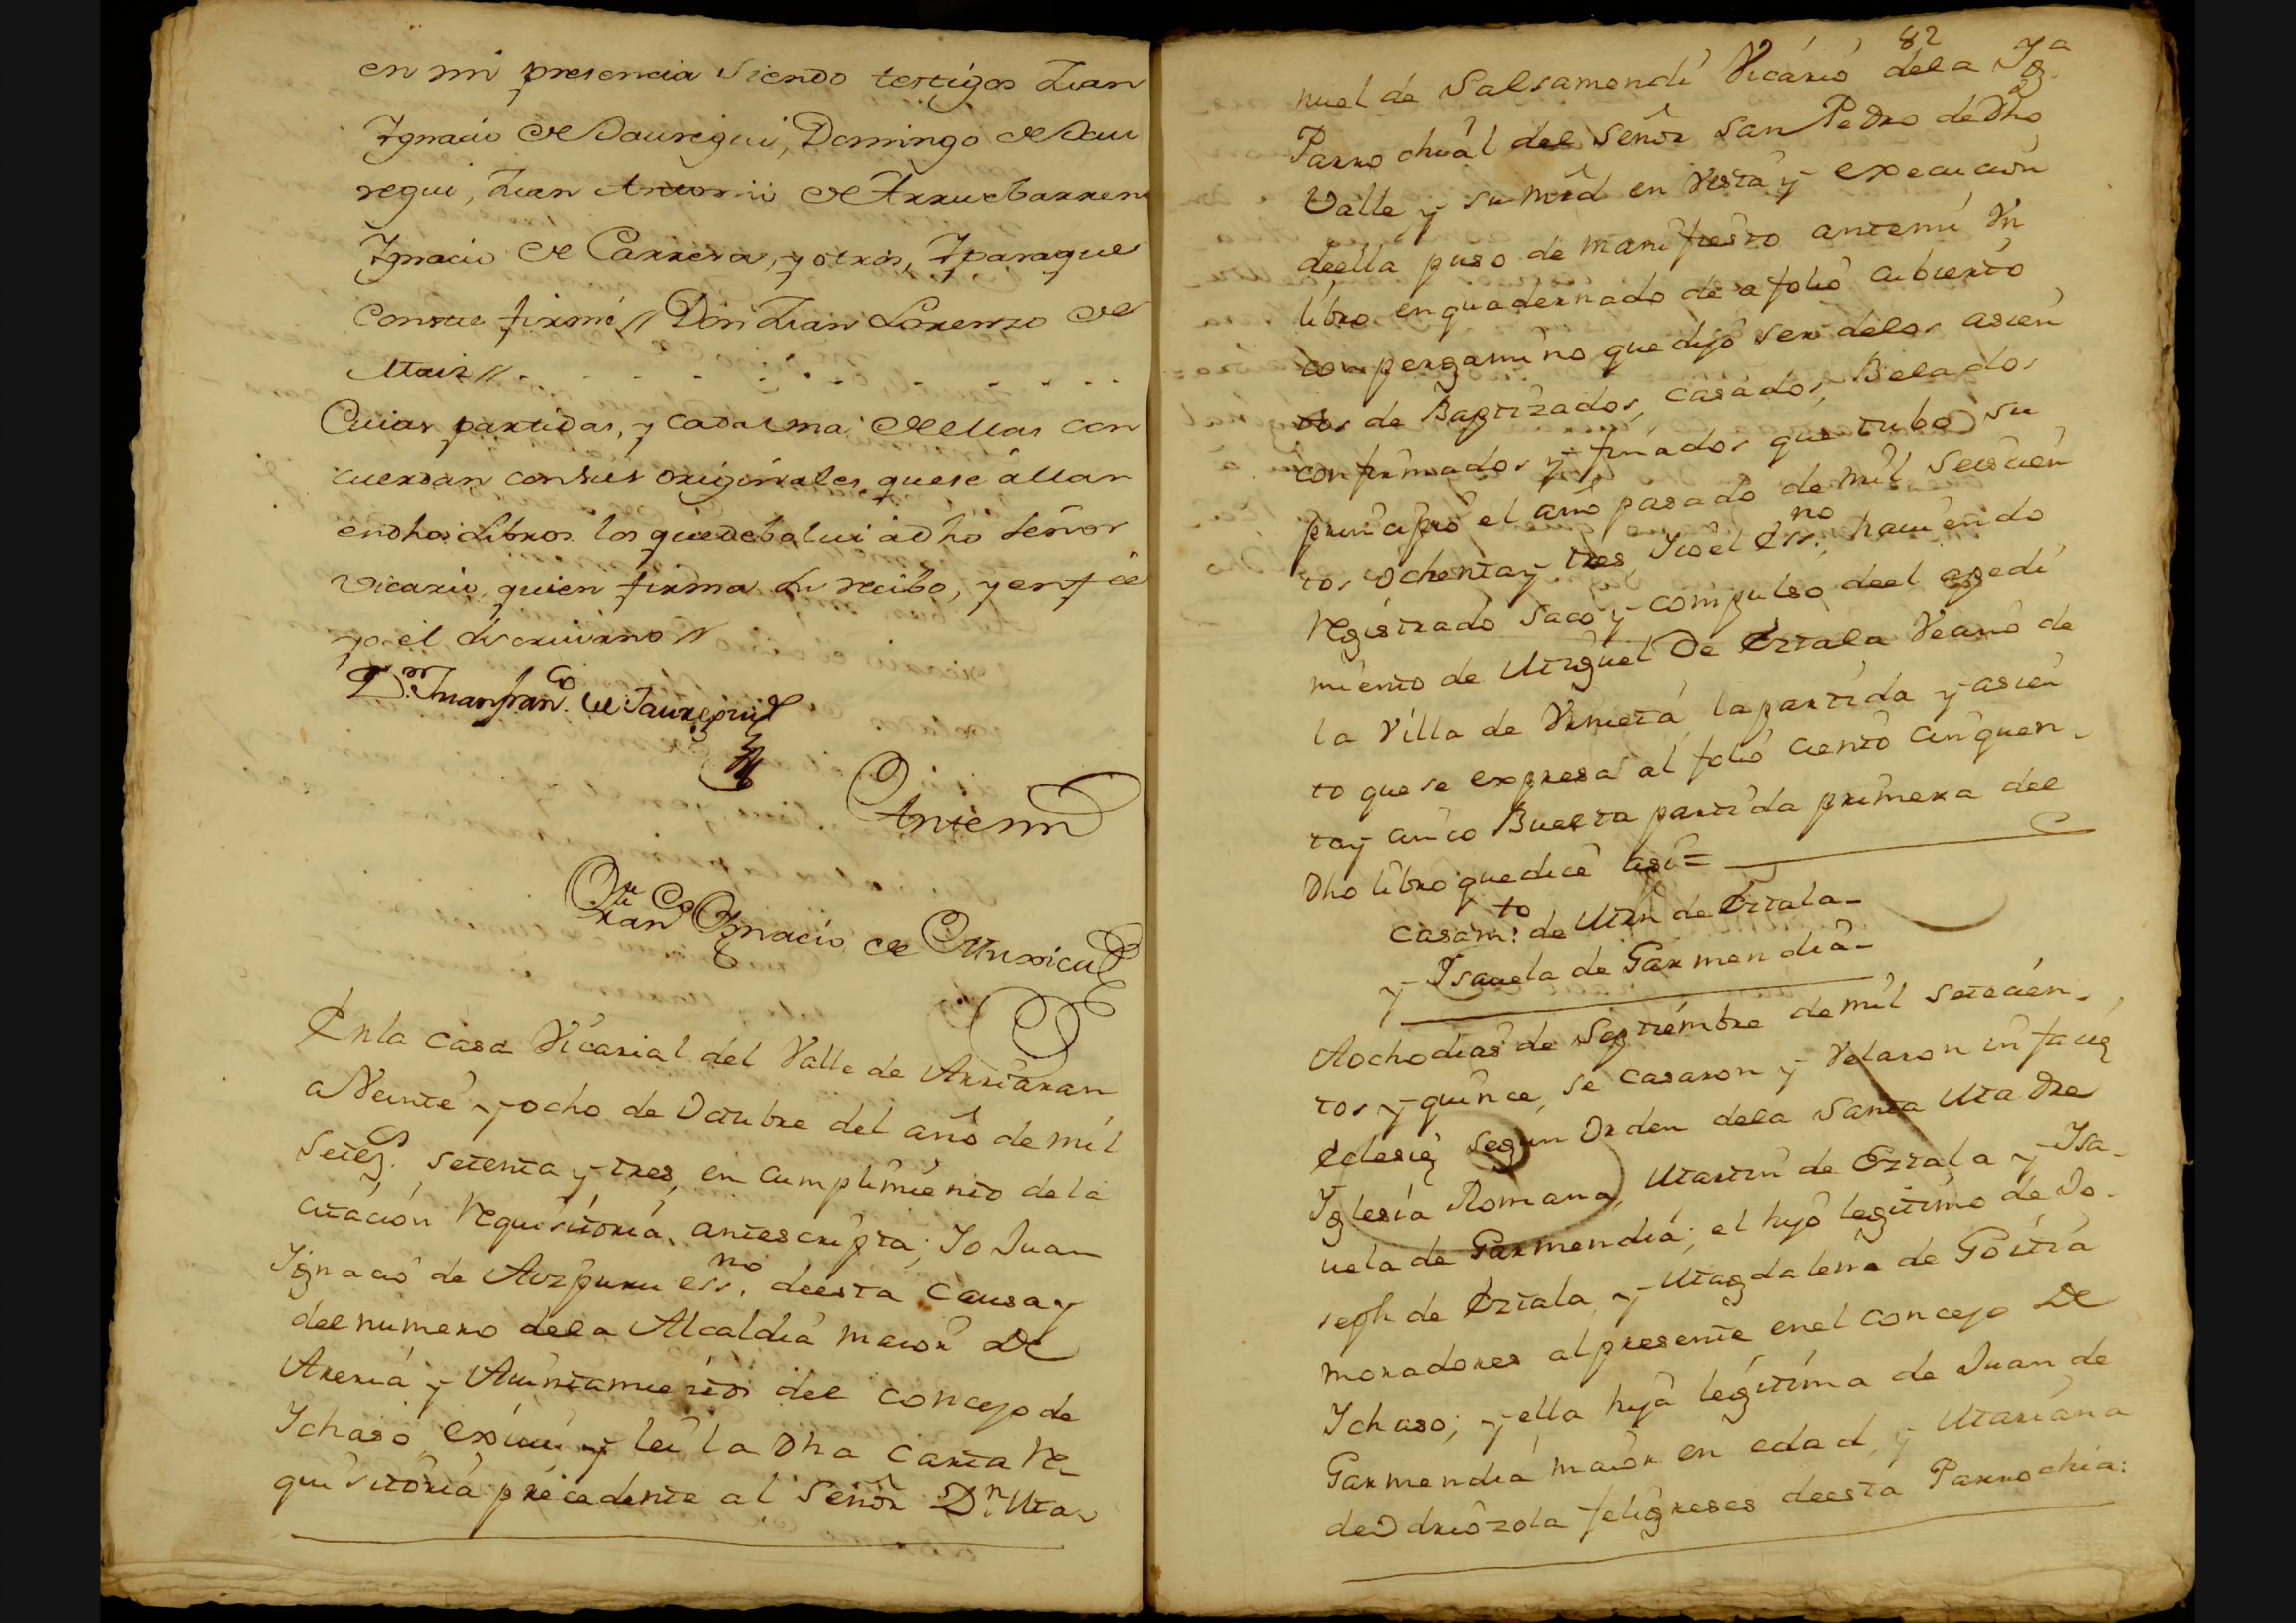 en mi presencia siendo testigos Juan
Ygnacio de Jauregui, Domingo de Jau
regui, Juan Antonio de Arruebarrena
Ygnacio de Carrera, y otros, Y paraque
Conste firmè // Don Juan Lorenzo de
Maiz //
Cuias partidas, y cada una de ellas con
cuerdan con sus originales quese allan
endhos Libros los quedebolui àdho señor
Vicario, quien firma su recibo, y enfeè
yo el escriuano //
Dn. Juanfranco. de Jauregui
Antemi
Juan Ygnacio de Muxica
En la casa Vicarial del Valle de Arriaran
a Veinte y ocho de Octubre del año de mil
Setezs. setenta y tres, en cumplimiento de la
citación Requisitoria, antescripta; Yo Juan
Ygnacio de Aizpuru essno. deesta Causa y
del numero dela Alcaldia maior De
Areria y Aiuntamiento del concejo de
Ichaso, exiui y lei la Dha Carta Re-
quisitoria precedente al Señor Dn. Ma-
82
nuel de Salsamendi Vicario dela Yga
Parrochial del Señor San Pedro de Dho
Valle y su Mrd en Vista y execucion
deella puso de manifiesto antemi Vn
libro enquadernado de a folio cubierto
con pergamino que dijo ser delos asien
tos de Baptizados, casados, Belados
confirmados y finados que tubo su
principio el año pasado de mil seiscien
tos ochenta y tres, Yo el Essno. hauiendo
Registrado saco y compulso deel apedi
miento de Miguel De Eztala Veano de
la Villa de Vrnieta la partida y asien
to que se expresa al folio ciento cinquen-
ta y cinco Buelta partida primera del
Dho libro que dice asi =
Casamto: de Mrn de Eztala-
y Ysauela de Garmendia-
A ocho dias de Septiembre de mil setecien-
tos y quince, se casaron y Velaron in facie
Eclesie segun Orden dela Santa Madre
Yglesia Romana, Martin de Eztala y Isa-
uela de Garmendia; el hijo legitimo de Jo-
seph de Eztala, y Magdalena de Goitia
moradores al presente en el concejo De
Ichaso; y ella hija legitima de Juan de
Garmendia maior en edad, y Mariana
de Odriozola feligreses deesta Parrochia: